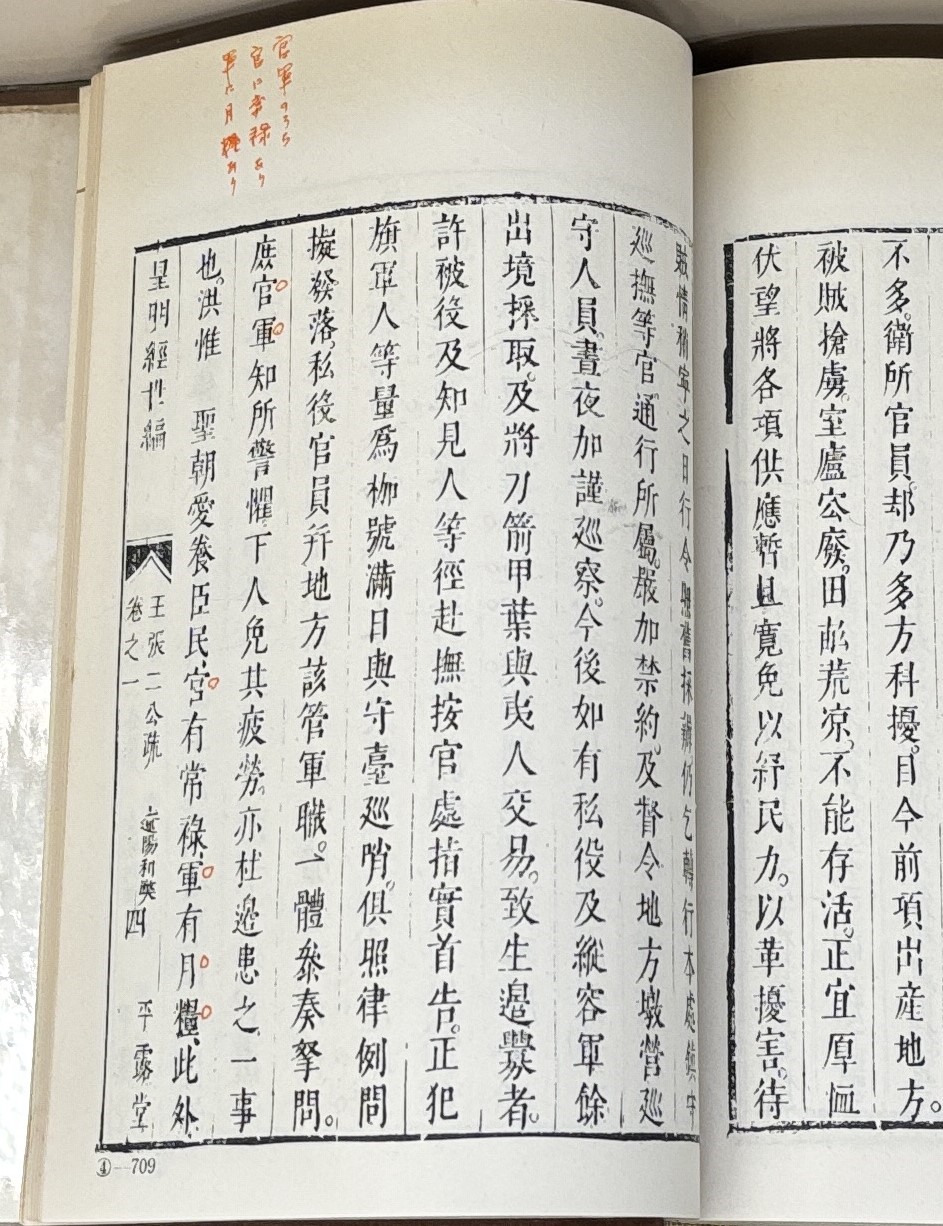 不多。衛所官員。却乃多方科擾。目今前項出產地方。
被賊搶虜。室廬空廢。田畆荒凉。不能存活。正宜厚恤
伏望將各項供應暫且寬免以紓民力。以革擾害。待
賊情稍寧之日行令照舊採辦仍乞轉行本處鎮守
巡撫等官通行所屬。嚴加禁約。及督令地方墩營巡
守人員。晝夜加謹巡察。今後如有私役及縱容軍餘
出境採取。及將刀箭甲葉與夷人交易。致生邊釁者。
許被役及知見人等徑赴撫按官處指實首告。正犯
旗軍人等量爲枷號滿日與守臺巡哨。俱照律例問
擬發落。私役官員幷地方該管軍職。一體叅奏拏問。
庶官軍知所警懼。下人免其疲勞。亦杜邊患之一事
也。洪惟 聖朝愛養臣民。官有常祿軍有月糧、此外
皇明經世編
王張二公疏
卷之一
遼陽和弊
四
平露堂
官軍のうち
官に常禄あり
軍に月糧あり
④—709